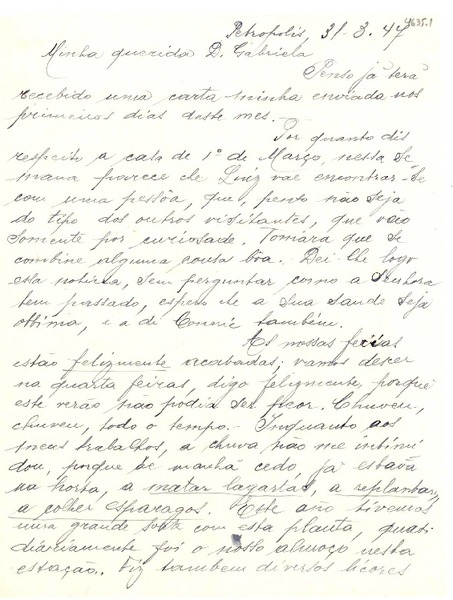 Petropolis, 31-3.47
4635.1
Minha querida D. Gabriela
Penso já terá
recebido uma carta minha enviada nos
primeiros dias deste mes.
Por quanto dis
respeito a casa de 1º de Março, nesta Se-
mana parece ele Luiz vae encontrar-Se
com uma pessôa, que, penso não seja
do tipo dos outros visitantes, que vão
somente por curiosade. Tomára que se
combine alguma cousa boa. Dei-lhe logo
esta noticia, sem perguntar como a Senhora
tem passado, espero ele a Sua Saude seja
ottima, e a de Connie tambem.
As nossas ferias
estão felizmente acabadas; vamos descer
na quarta feiras, digo felizmente, porque
este verão não pódia ser peor. Chuveu,
chuveu, todo o tempo.- Inquanto aos
meus trabalhos, a chuva não me intimi
dou, porque de manhã cedo, já estava
na horta, a matar lagartas, a replantar,
a colher esparagos. Este ano tivemos
uma grande com esta planta, quasi
diariamente foi o nosso almoço nesta
estação. Fiz tambem diversos licores